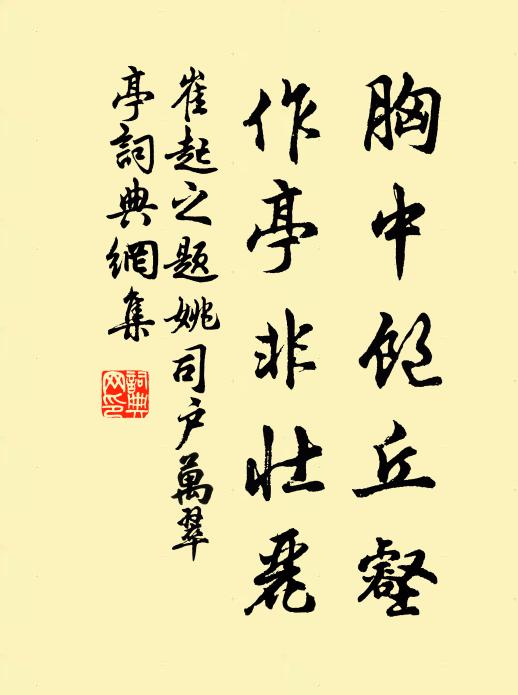 胸中飽丘壑
作亭非壯麗
崔起之題姚司户萬翠
亭詞典網集
詞典
网印